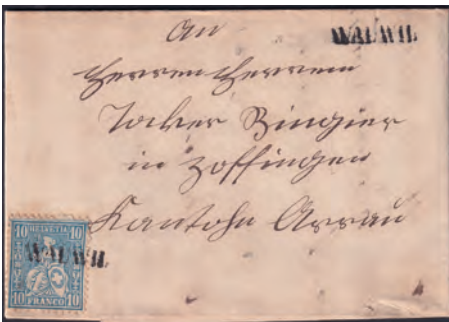 An
WALWIL
Herren Herren
Tocker Ringier
in Zoffingen
Kantohn Arrau
10 HELVETIA 10
WALWIL
10 FRANCO 10